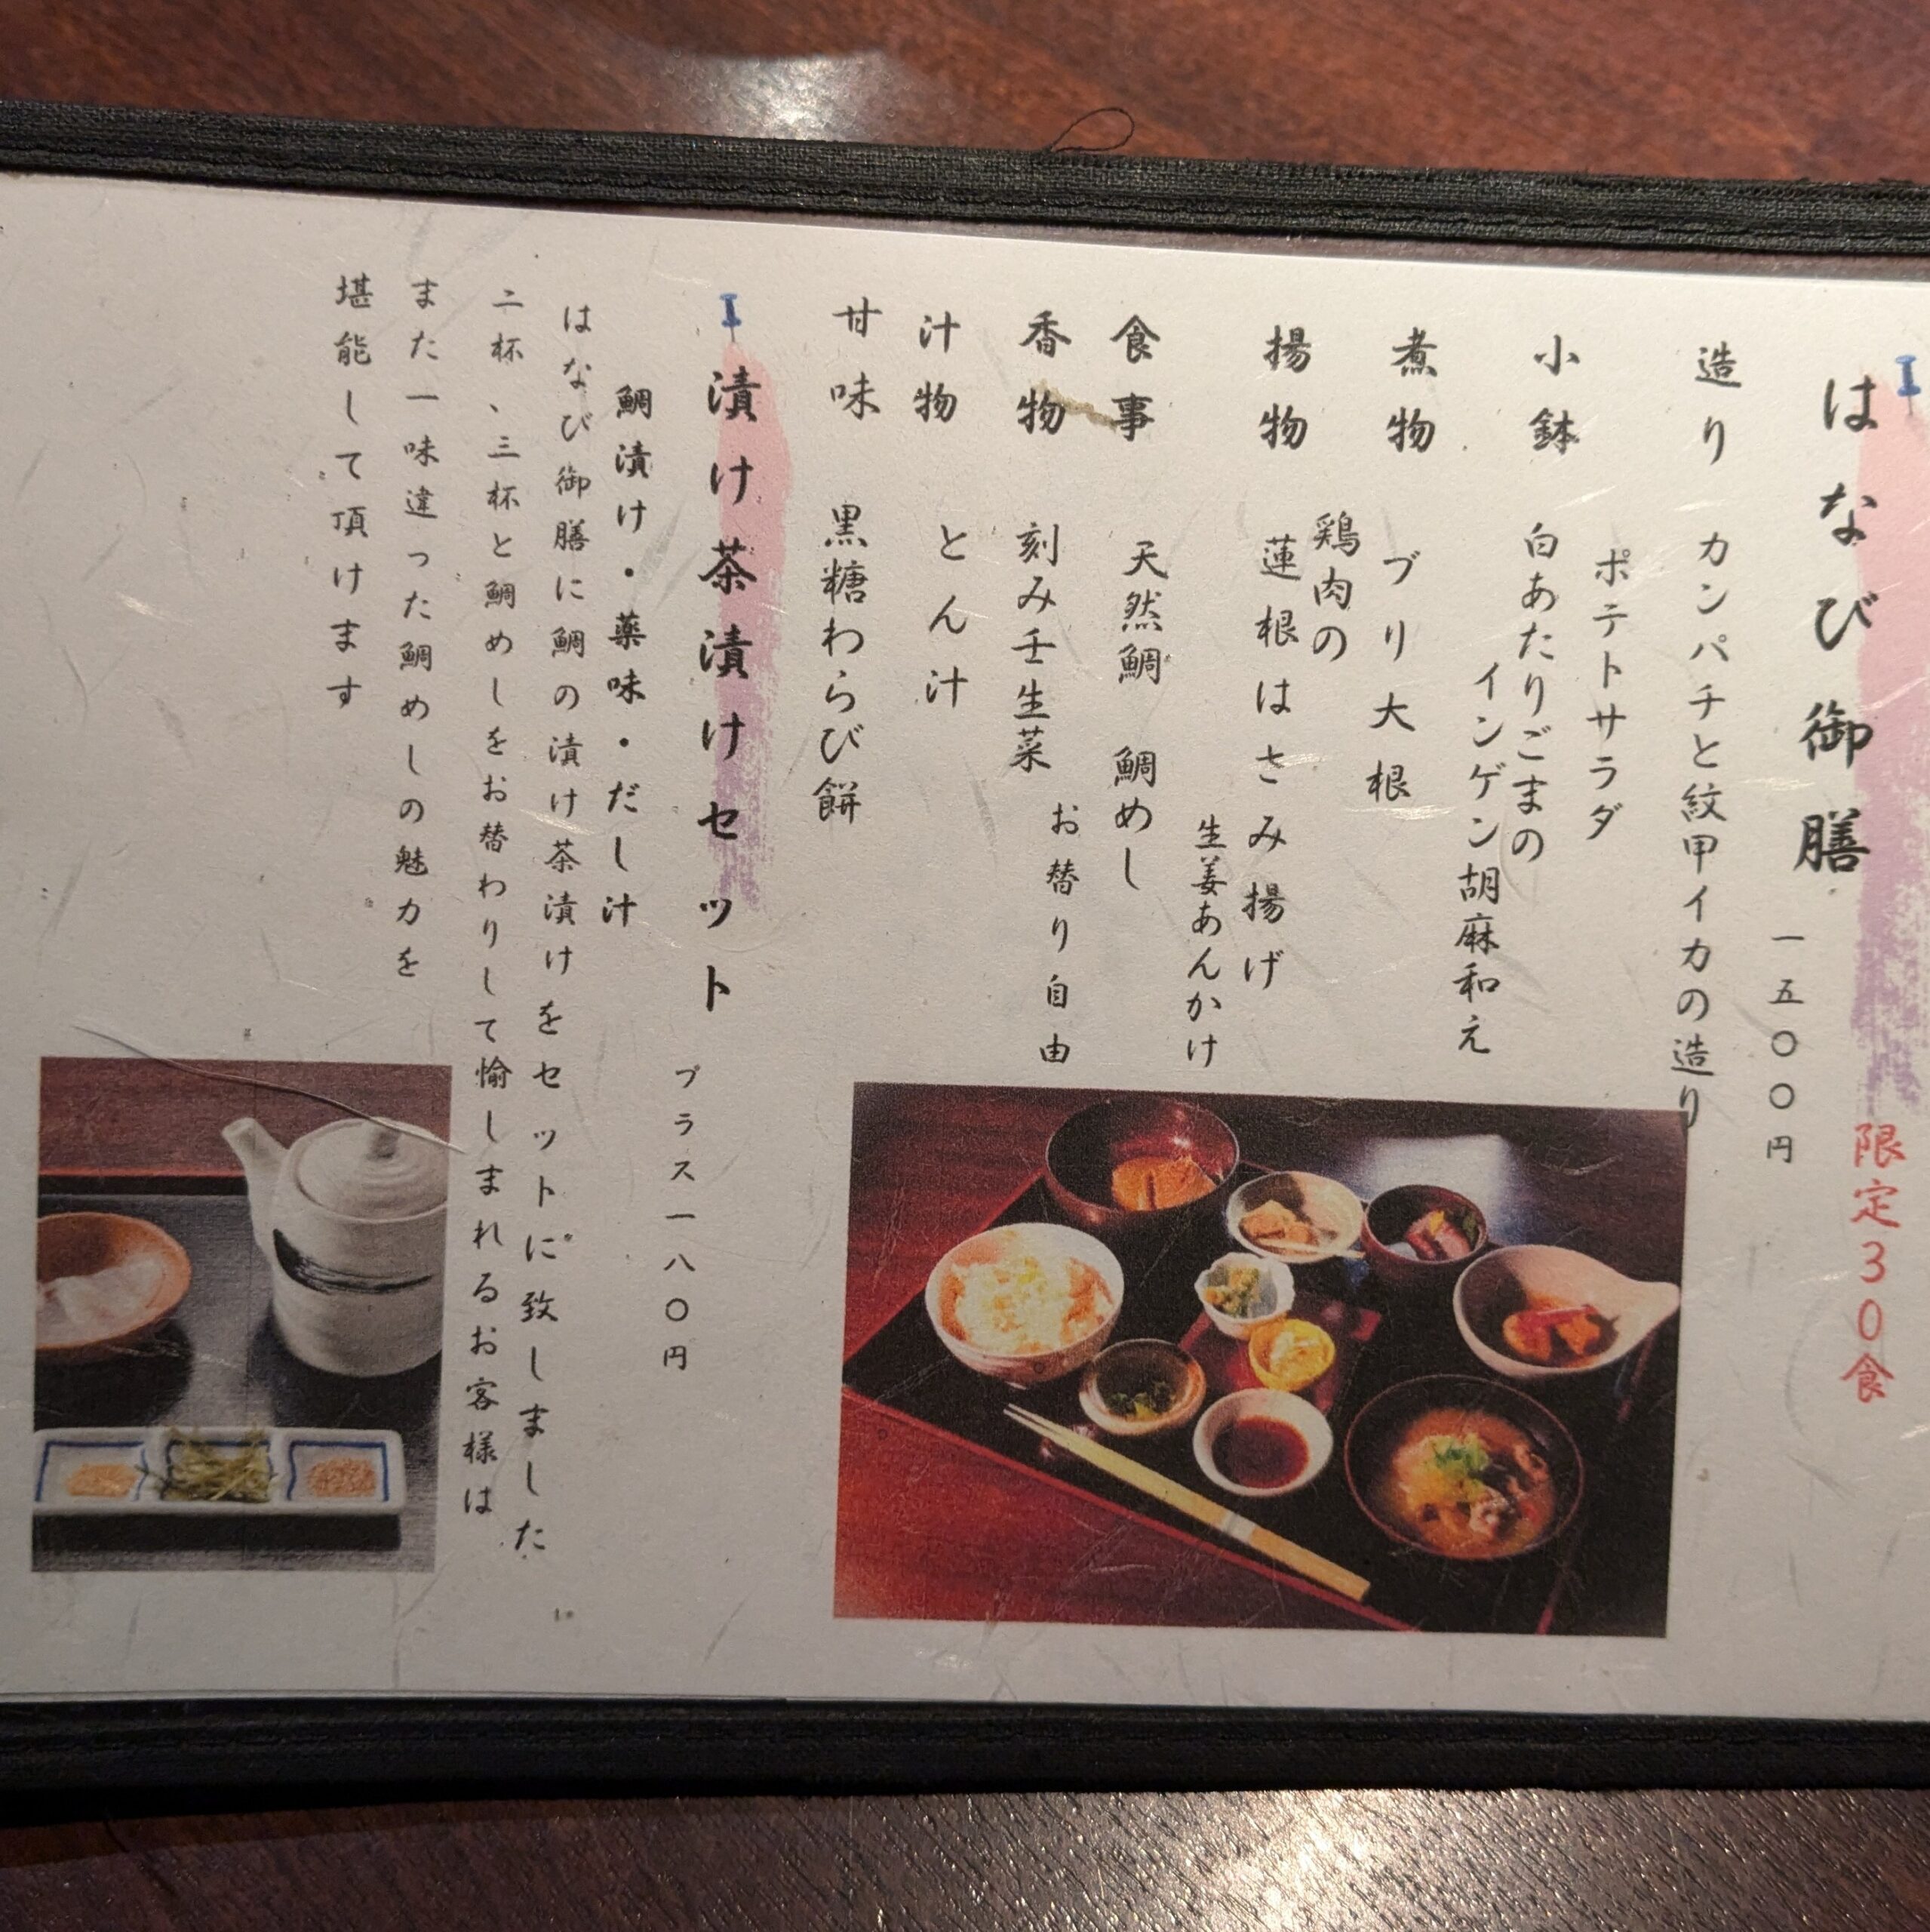 はなび御膳
限定30食
一五〇〇円
造り カンパチと紋甲イカの造り
ポテトサラダ
小鉢 白あたりごまの
インゲン胡麻和え
煮物 ブリ大根
鶏肉の
揚物 蓮根はさみ揚げ
生姜あんかけ
食事 天然鯛 鯛めし
お替り自由
香物 刻み壬生菜
汁物 とん汁
甘味 黒糖わらび餅
漬け茶漬けセット
プラス一八〇円
鯛漬け・薬味・だし汁
はなび御膳に鯛の漬け茶漬けをセットに致しました。
二杯、三杯と鯛めしをお替わりして愉しまれるお客様は
また一味違った鯛めしの魅力を
堪能して頂けます